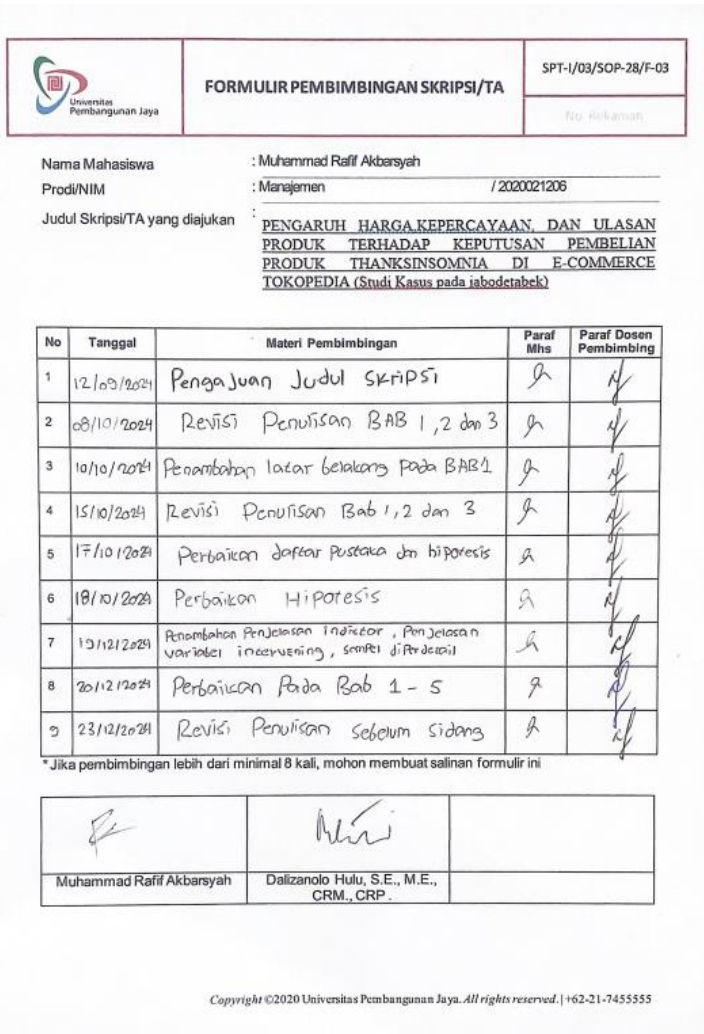 Universitas
Pembangunan Jaya
FORMULIR PEMBIMBINGAN SKRIPSI/TA
SPT-I/03/SOP-28/F-03
No. Rekaman
Nama Mahasiswa : Muhammad Rafif Akbarsyah
Prodi/NIM : Manajemen / 2020021206
Judul Skripsi/TA yang diajukan :
PENGARUH HARGA,KEPERCAYAAN, DAN ULASAN
PRODUK TERHADAP KEPUTUSAN PEMBELIAN
PRODUK THANKSINSOMNIA DI E-COMMERCE
TOKOPEDIA (Studi Kasus pada jabodetabek)
No Tanggal Materi Pembimbingan Paraf Mhs Paraf Dosen Pembimbing
1 12/09/2024 Pengajuan Judul Skripsi
2 08/10/2024 Revisi Penulisan BAB 1,2 dan 3
3 10/10/2024 Penambahan latar belakang pada BAB 1
4 15/10/2024 Revisi Penulisan Bab 1,2 dan 3
5 17/10/2024 Perbaikan daftar Pustaka dan hipotesis
6 18/10/2024 Perbaikan Hipotesis
7 19/12/2024 Penambahan Penjelasan indikator, Penjelasan
variabel intervening, sampel diperdetail
8 20/12/2024 Perbaikan Pada Bab 1 - 5
9 23/12/2024 Revisi Penulisan Sebelum Sidang
*Jika pembimbingan lebih dari minimal 8 kali, mohon membuat salinan formulir ini
Muhammad Rafif Akbarsyah
Dalizanolo Hulu, S.E., M.E.,
CRM., CRP.
Copyright ©2020 Universitas Pembangunan Jaya. All rights reserved. | +62-21-7455555